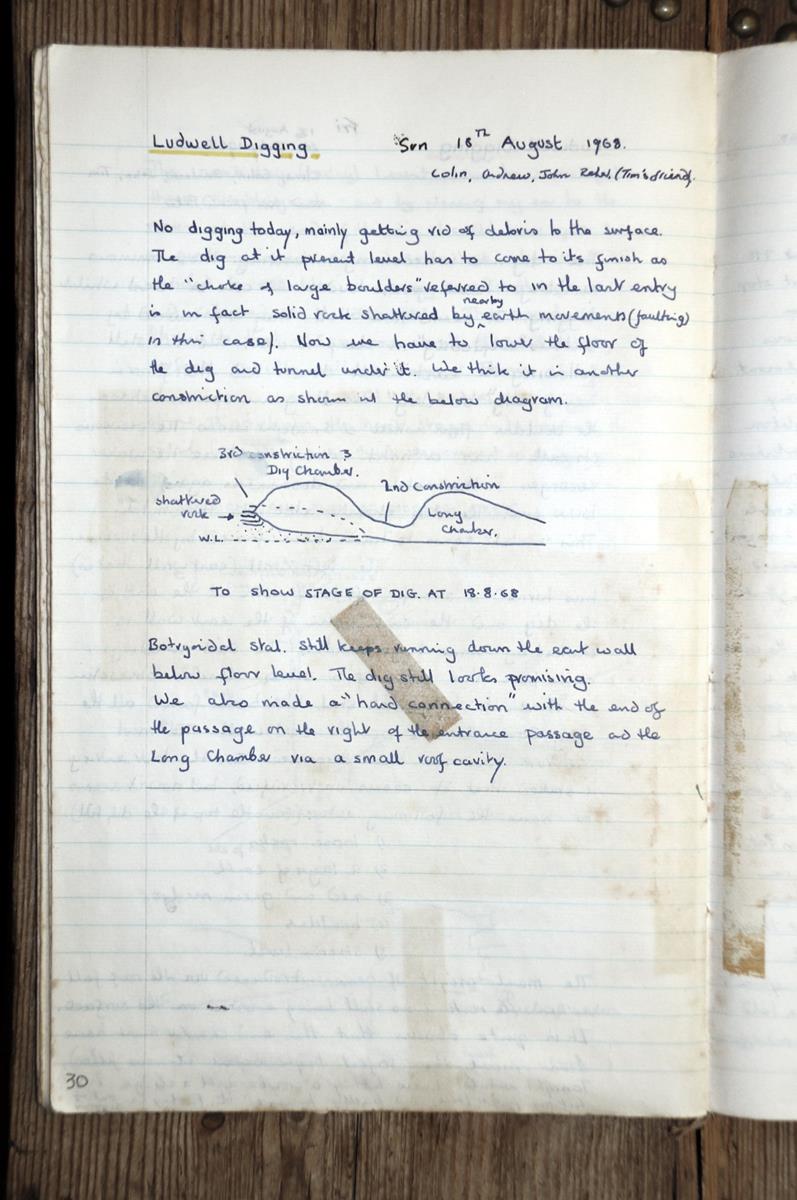 Ludwell Digging Sun 18TH August 1968.
Colin, Andrew, John (Tim's friend).
No digging today, mainly getting rid of debris to the surface.
The dig at it present level has to come to its finish as
the "choke of large boulders" referred to in the last entry
is in fact solid rock shattered by nearby earth movements (faulting)
in this case). Now we have to lower the floor of
the dig and tunnel under it. We think it is another
constriction as shown in the below diagram.
3rd constriction 3
Dig Chamber.
2nd Constriction
shattered
rock
Long
Chamber.
W.L.
TO show STAGE OF DIG. AT 18.8.68
Botryoidal stal. still keeps running down the east wall
below floor level. The dig still looks promising.
We also made a "hard connection" with the end of
the passage on the right of the entrance passage and the
Long Chamber via a small roof cavity.
30